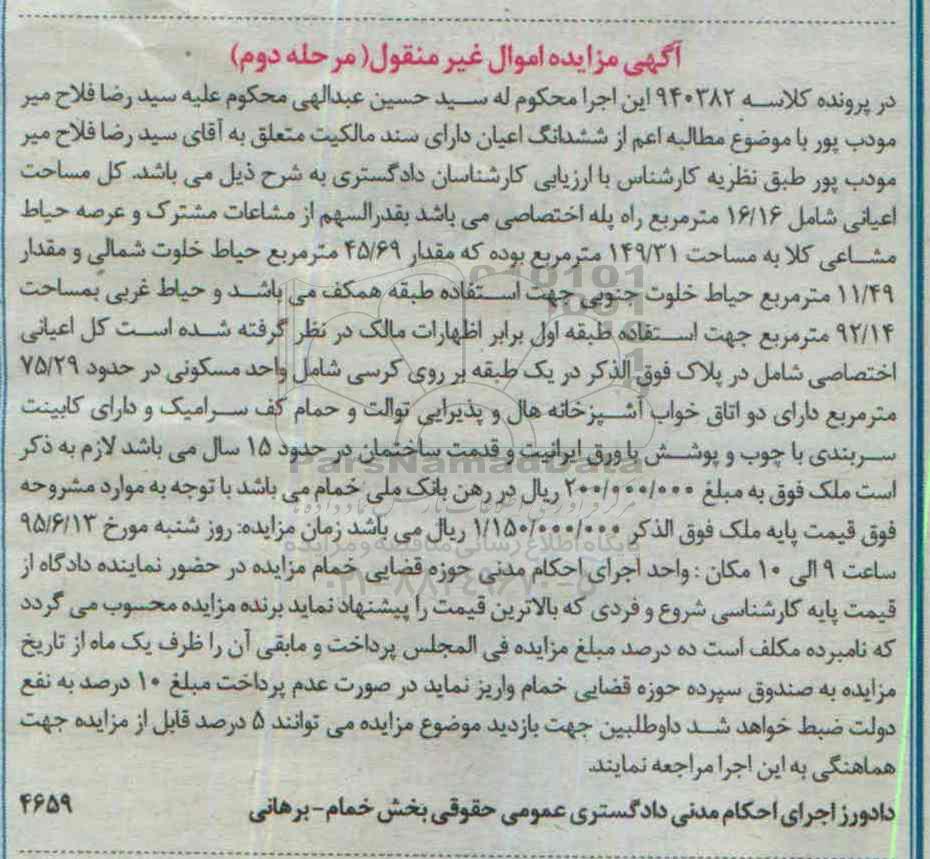 آگهی مزایده اموال غیر منقول( مرحله دوم)
در پرونده کلاسه ۹۴۰۳۸۲ این اجرا محکوم له سید حسین عبدالهی محکوم علیه سید رضا فلاح میر
مودب پور با موضوع مطالبه اعم از ششدانگ اعیان دارای سند مالکیت متعلق به آقای سید رضا فلاح میر
مودب پور طبق نظریه کارشناس با ارزیابی کارشناسان دادگستری به شرح ذیل می باشد. کل مساحت
اعیانی شامل ۱۶/۱۶ مترمربع راه پله اختصاصی می باشد بقدرالسهم از مشاعات مشترک و عرصه حیاط
مشاعی کلا به مساحت ۱۴۹/۳۱ مترمربع بوده که مقدار ۴۵/۶۹ مترمربع حیاط خلوت شمالی و مقدار
۱۱/۴۹ مترمربع حیاط خلوت جنوبی جهت استفاده طبقه همکف می باشد و حیاط غربی بمساحت
۹۲/۱۴ مترمربع جهت استفاده طبقه اول برابر اظهارات مالک در نظر گرفته شده است کل اعیانی
اختصاصی شامل در پلاک فوق الذکر در یک طبقه بر روی کرسی شامل واحد مسکونی در حدود ۷۵/۲۹
مترمربع دارای دو اتاق خواب آشپزخانه هال و پذیرایی توالت و حمام کف سرامیک و دارای کابینت
سربندی با چوب و پوشش با ورق ایرانیت و قدمت ساختمان در حدود ۱۵ سال می باشد لازم به ذکر
است ملک فوق به مبلغ ۲۰۰/۰۰۰/۰۰۰ ریال در رهن بانک ملی خمام می باشد با توجه به موارد مشروحه
فوق قیمت پایه ملک فوق الذکر ۱/۱۵۰/۰۰۰/۰۰۰ ریال می باشد زمان مزایده: روز شنبه مورخ ۹۵/۶/۱۳
ساعت ۹ الی ۱۰ مکان : واحد اجرای احکام مدنی حوزه قضایی خمام مزایده در حضور نماینده دادگاه از
قیمت پایه کارشناسی شروع و فردی که بالاترین قیمت را پیشنهاد نماید برنده مزایده محسوب می گردد
که نامبرده مکلف است ده درصد مبلغ مزایده فی المجلس پرداخت و مابقی آن را ظرف یک ماه از تاریخ
مزایده به صندوق سپرده حوزه قضایی خمام واریز نماید در صورت عدم پرداخت مبلغ ۱۰ درصد به نفع
دولت ضبط خواهد شد داوطلبین جهت بازدید موضوع مزایده می توانند ۵ درصد قابل از مزایده جهت
هماهنگی به این اجرا مراجعه نمایند.
دادورز اجرای احکام مدنی دادگستری عمومی حقوقی بخش خمام-برهانی ۴۶۵۹
ParsNamadData
پایگاه اطلاع رسانی مناقصه و مزایده